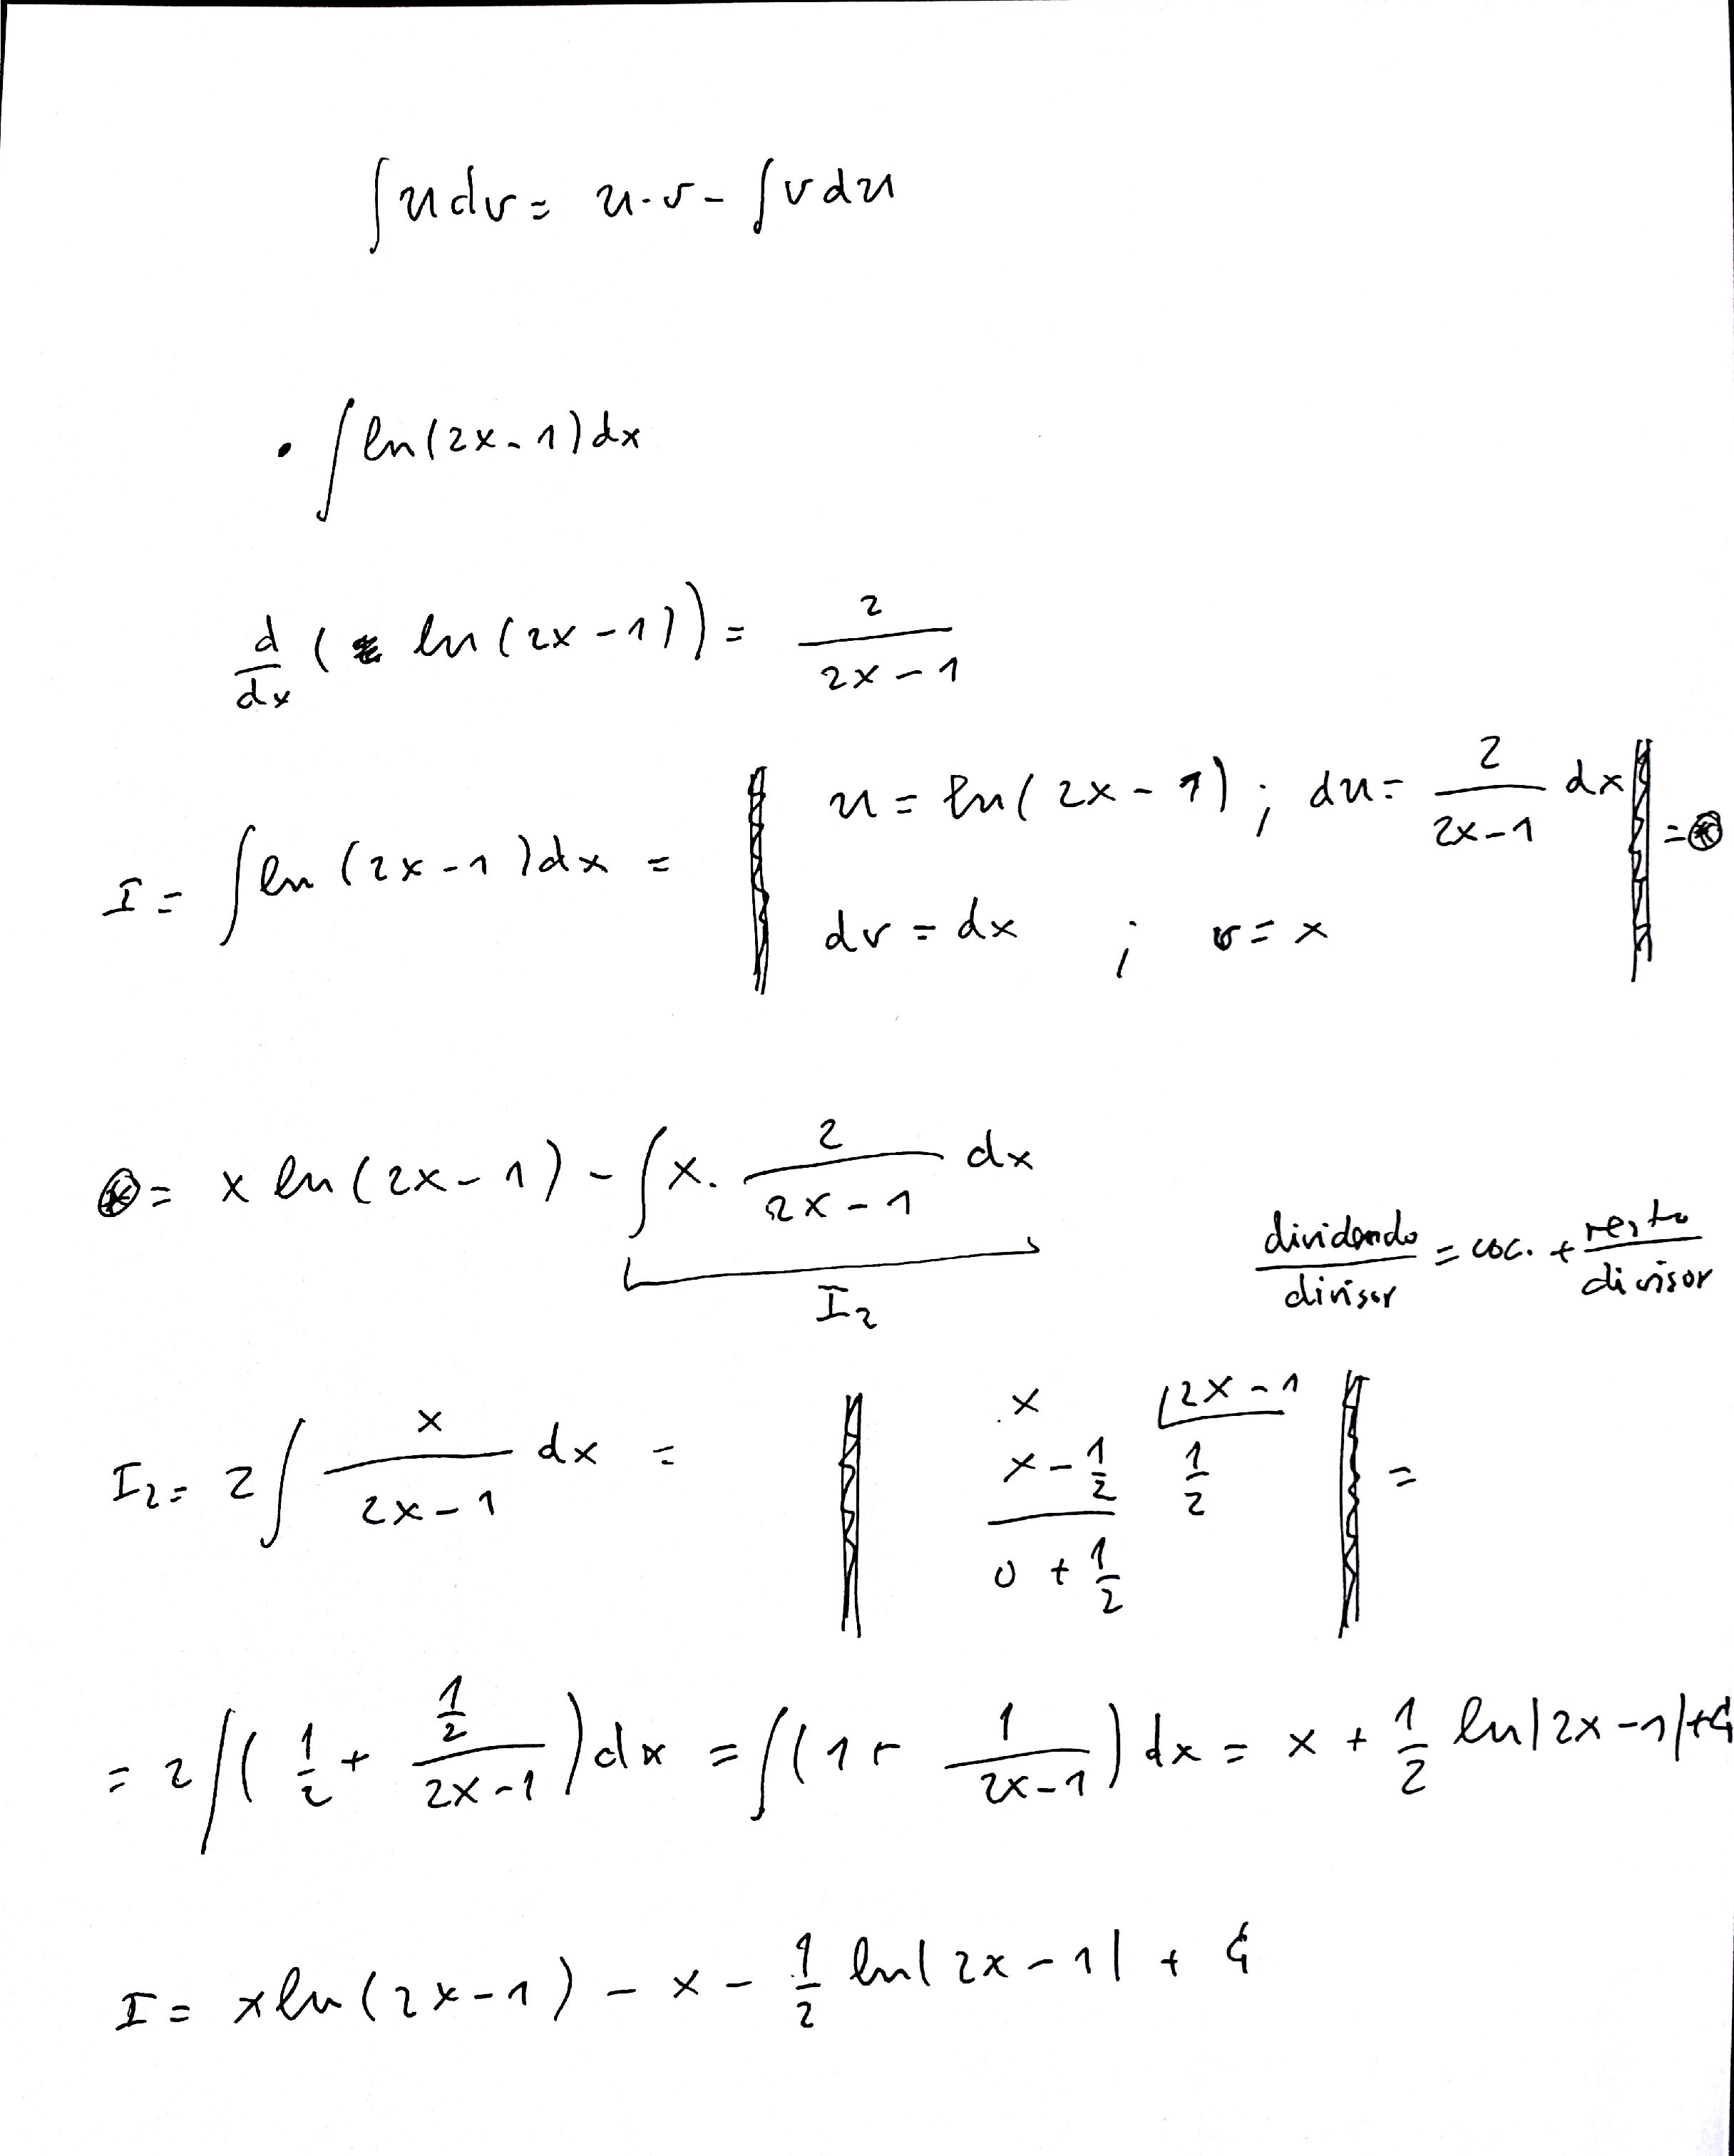 ∫ u dv = u·v - ∫ v du
• ∫ ln(2x-1) dx
d/dx ( ln(2x-1)) = 2/(2x-1)
I = ∫ ln(2x-1) dx = || u = ln(2x-1) ; du = 2/(2x-1) dx || = ⊛
dv = dx ; v = x
⊛ = x ln(2x-1) - ∫ x · 2/(2x-1) dx
I₂
dividendo/divisor = coc. + resto/divisor
I₂ = 2 ∫ x/(2x-1) dx = || x |2x-1 || =
x - 1/2 1/2
0 + 1/2
= 2 ∫ (1/2 + (1/2)/(2x-1)) dx = ∫ (1 + 1/(2x-1)) dx = x + 1/2 ln|2x-1| + C
I = x ln(2x-1) - x - 1/2 ln|2x-1| + C